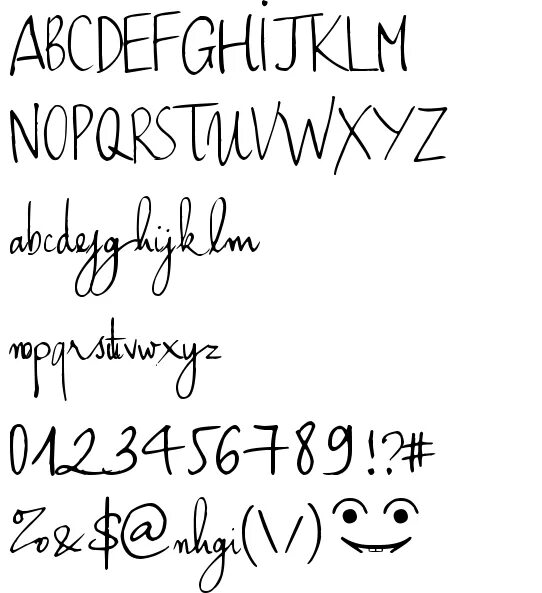 ABCDEFGHIJKLM
NOPQRSTUVWXYZ
abcdefghijklm
nopqrstuvwxyz
0123456789!?#
%&$@nhgi(\/)